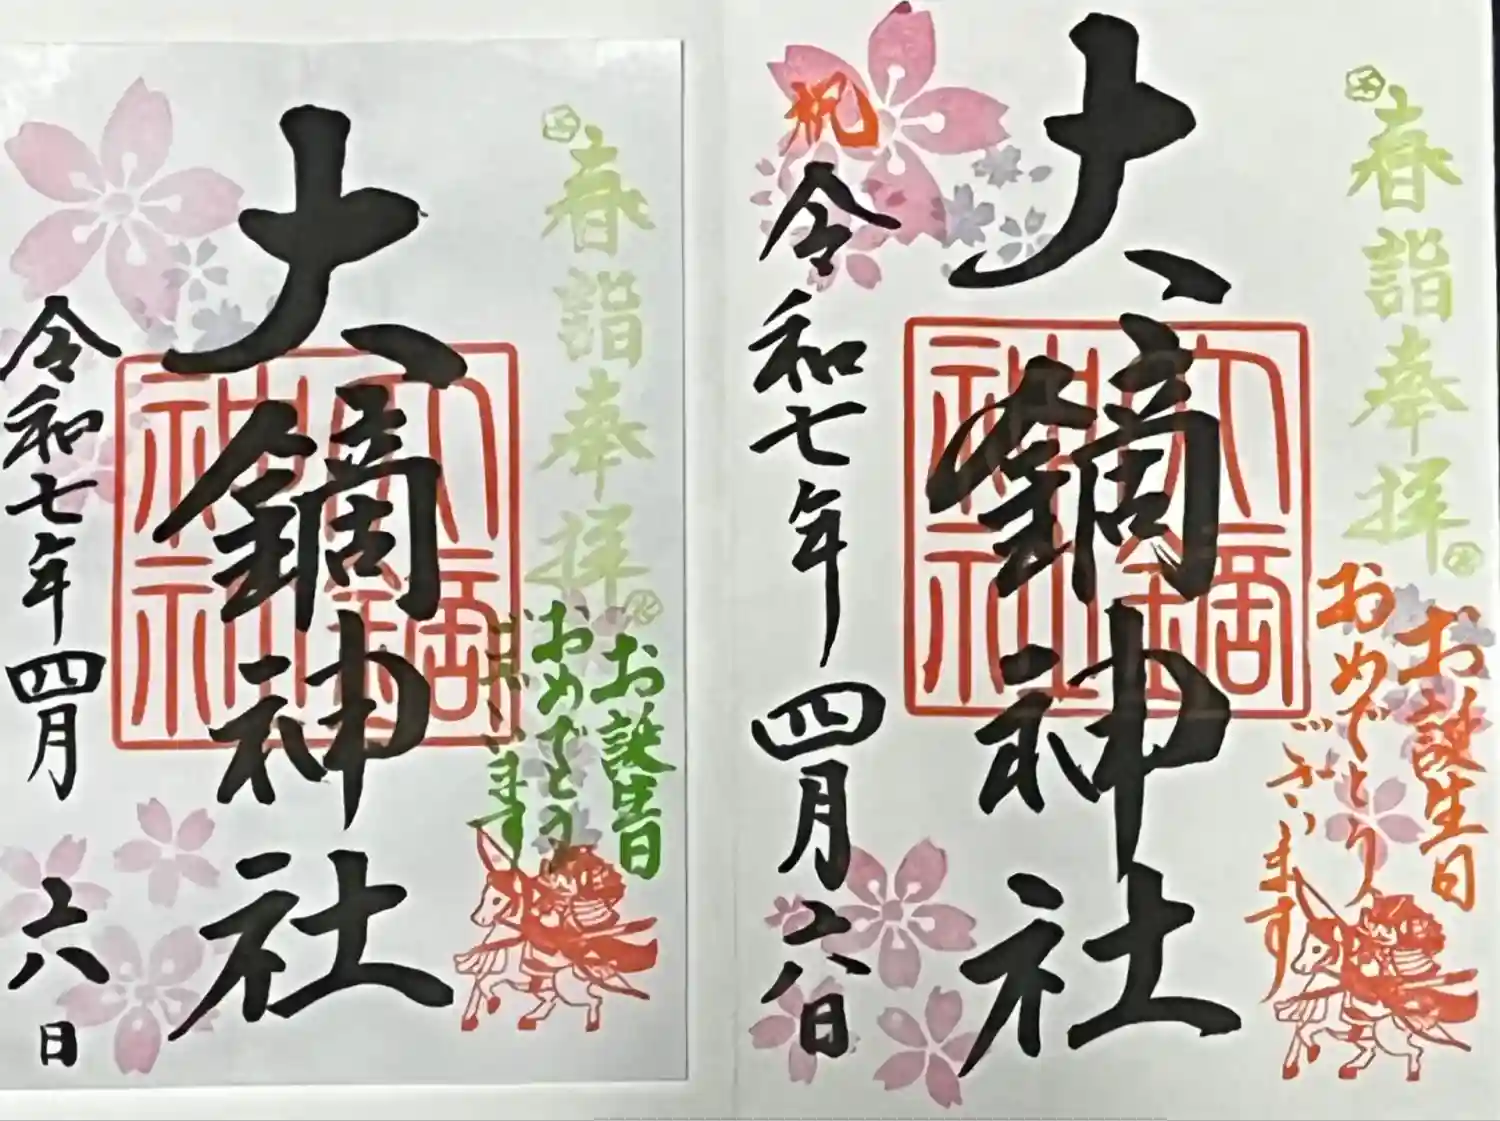 春詣奉拝
お誕生日
おめでとう
ございます
大鏑神社
大鏑神社
令和七年四月六日
春詣奉拝
お誕生日
おめでとう
ございます
大鏑神社
大鏑神社
祝
令和七年四月六日